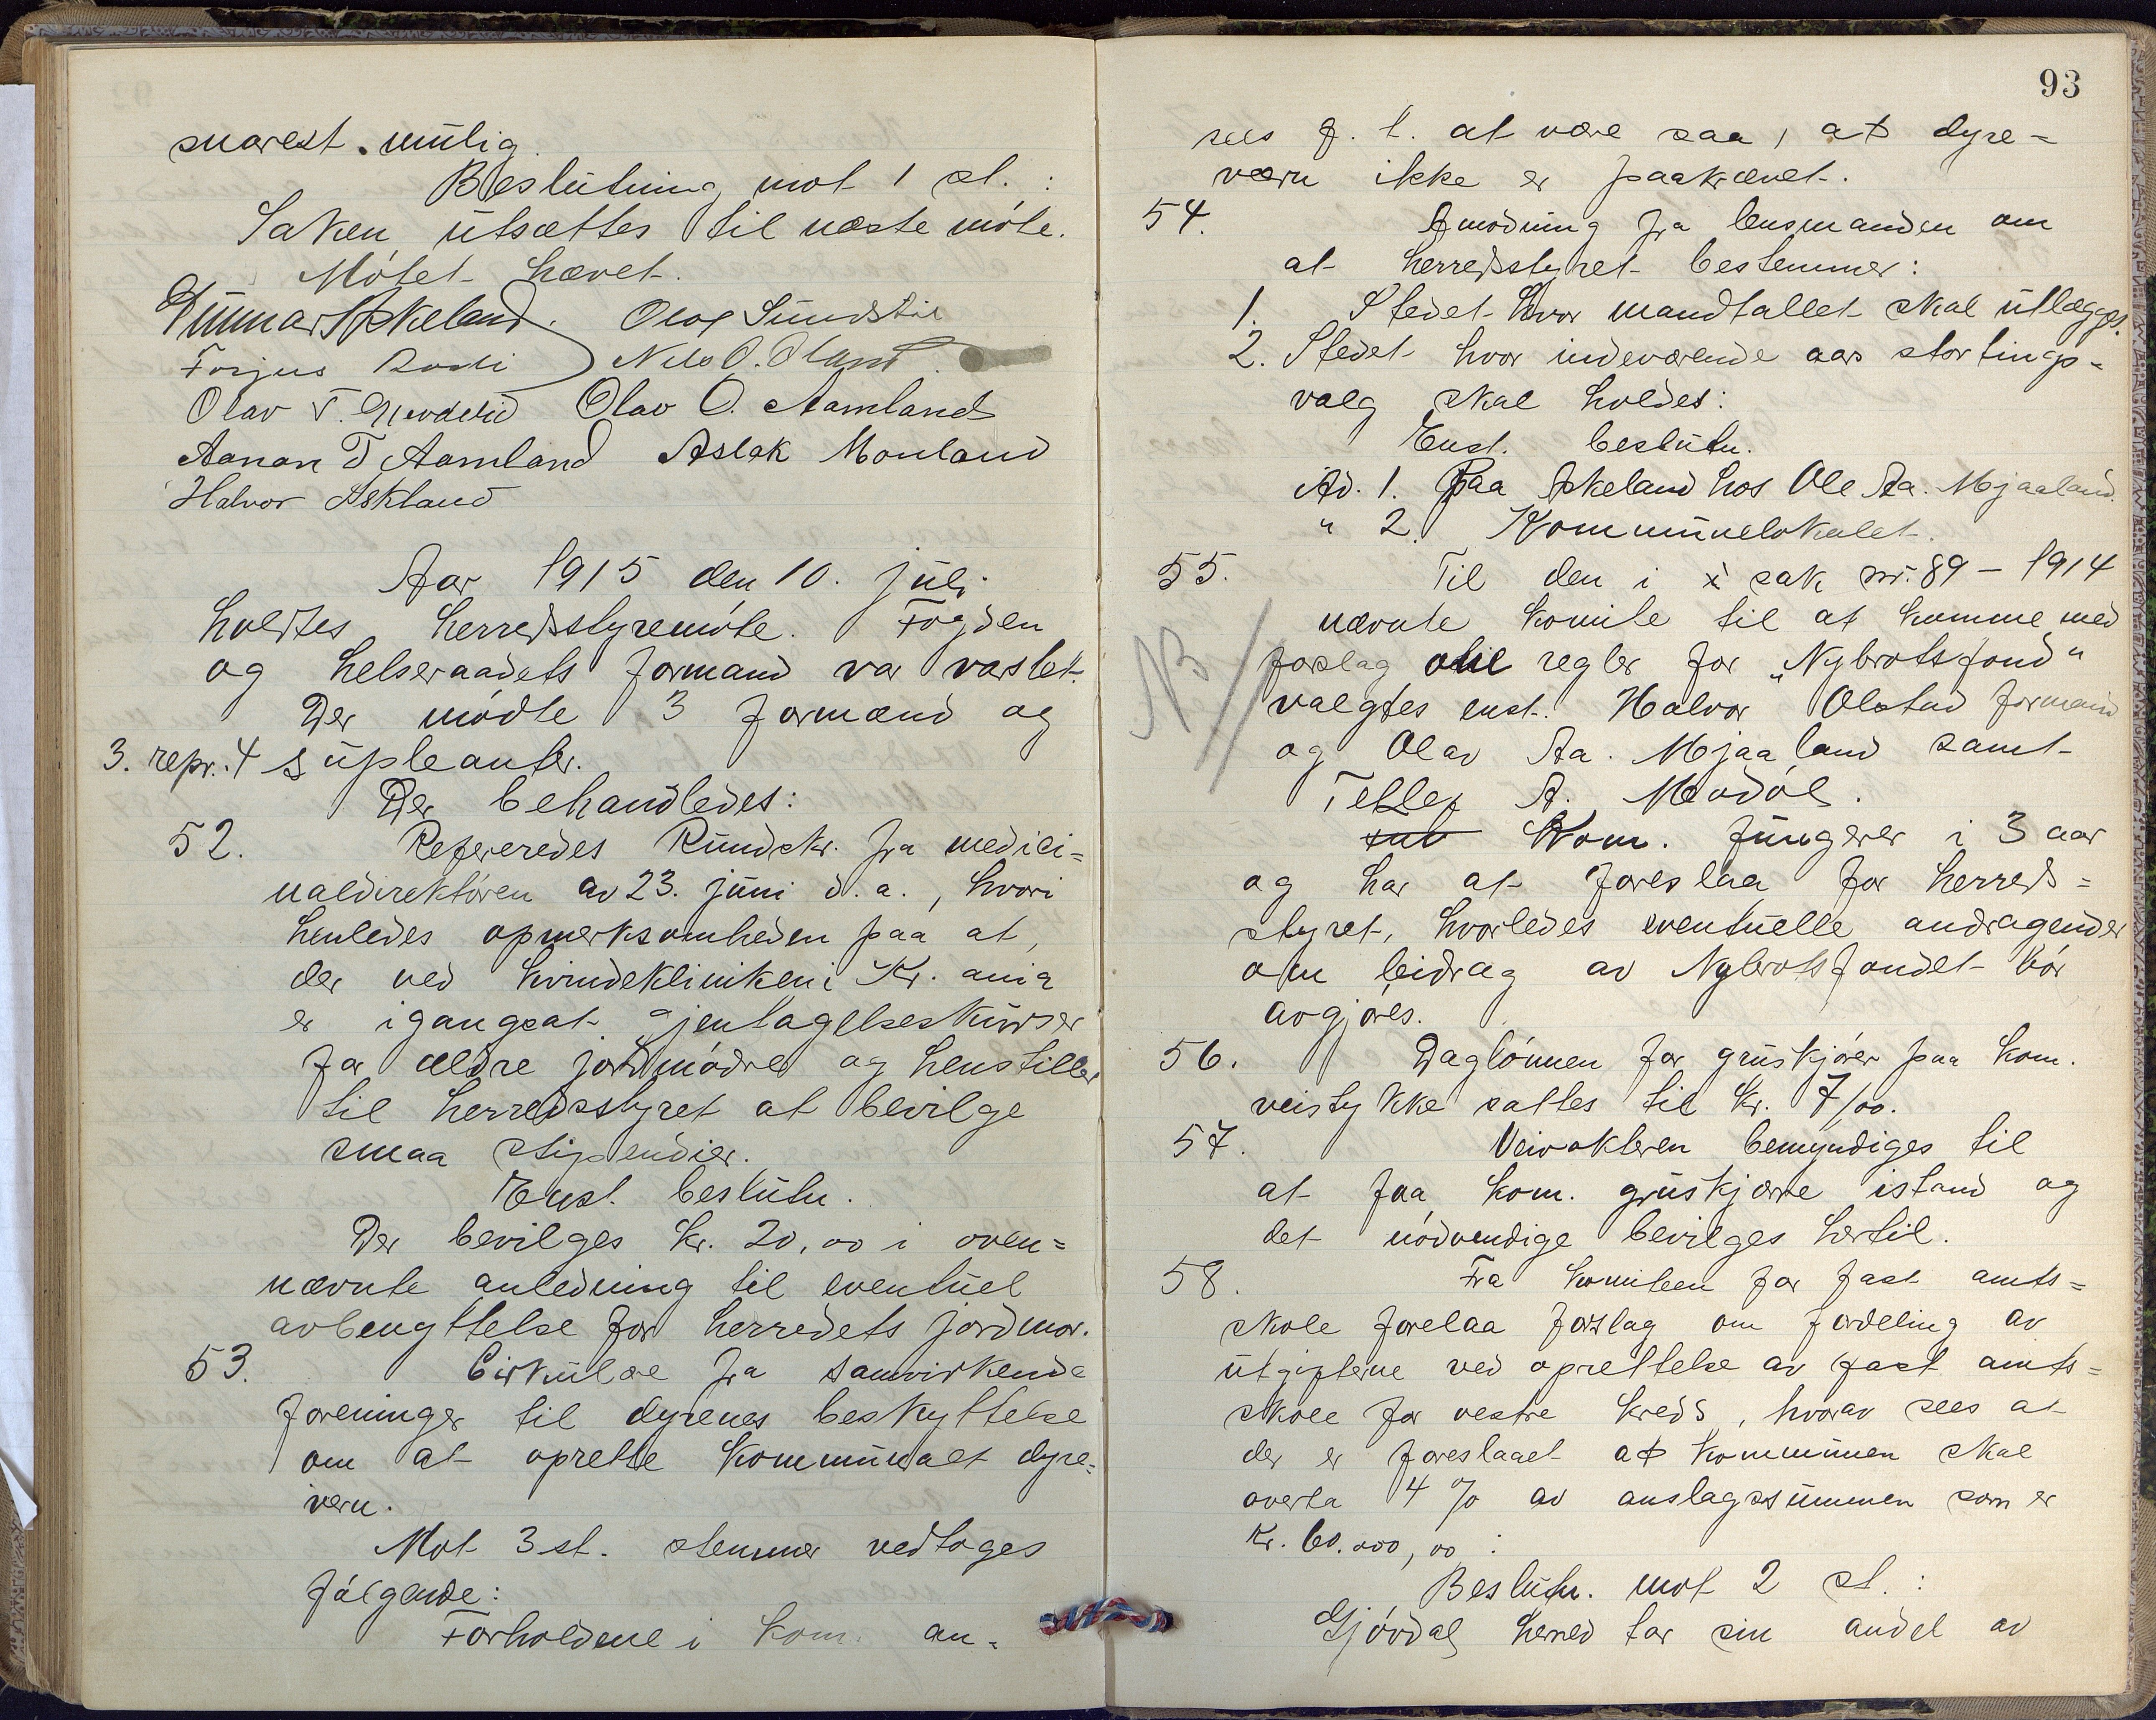 snarest mulig.
Beslutning mot 1 st. :
Saken utsættes til næste møte.
Møtet hævet.
Gunnar Askeland. Olav Sundsli
Torjus Nils O. Øland
Olav T. Olav O. Aamland
Aanon T Aamland Aslak Mouland
Halvor Askland
Aar 1915 den 10. juli
holdtes herredsstyremøte. Fogden
og helseraadets formand var varslet.
Der mødte 3 formænd og
3. repr. 4 supleanter.
Der behandledes:
52. Refereredes Rundskr. fra medici=
naldirektøren av 23. juni d. a., hvori
henledes opmerksomheden paa at,
der ved kvindekliniken i Kr.ania
er igangsat gjentagelseskurser
for ældre jordmødre og henstiller
til herredsstyret at bevilge
smaa stipendier.
Enst. beslutn.
Der bevilges kr. 20,00 i oven=
nævnte anledning til eventuel
avbenyttelse for herredets jordmor.
53. Cirkulæe fra samvirkende
foreninger til dyrenes beskyttelse
om at oprette kommunalt dyre=
vern.
Mot 3 st. stemmer vedtoges
følgende:
Forholdene i kom. an=
93
sees f. t. at være saa, at dyre=
værn ikke er paakrævet.
54. Anmodning fra lensmanden om
at herredsstyret bestemmer:
1. Stedet hvor mandtallet skal utlægges.
2. Stedet hvor indeværende aars stortings=
valg skal holdes:
Enst. beslutn.
Ad. 1. Paa Askeland hos Ole Aa. Mjaaland.
" 2. Kommunelokalet.
55. Til den i sak nr. 89 - 1914
nævnte komite til at komme med
NB
forslag til regler for "Nybrotsfond"
valgtes enst. Halvor Olstad formand
og Olav Aa. Mjaaland samt
Tellef A. Moødøl.
Kom. fungerer i 3 aar
og har at foreslaa for herreds=
styret, hvorledes eventuelle andragender
om bidrag av Nybrotsfondet bør
avgjøres.
56. Daglønnen for gruskjører paa kom.
veistykke sattes til kr. 7/00.
57. Veivokteren bemyndiges til
at faa kom. gruskjærre istand og
det nødvendige bevilges hertil.
58. Fra komiteen for fast amts=
skole forelaa forslag om fordeling av
utgifterne ved oprettelse av fast amts=
skole for vestre kreds, hvorav sees at
der er foreslaaet at kommunen skal
overta 4 % av anslagssummen som er
kr. 60.000,00 :
Beslutn. mot 2 st. :
Gjøvdal herred tar sin andel av